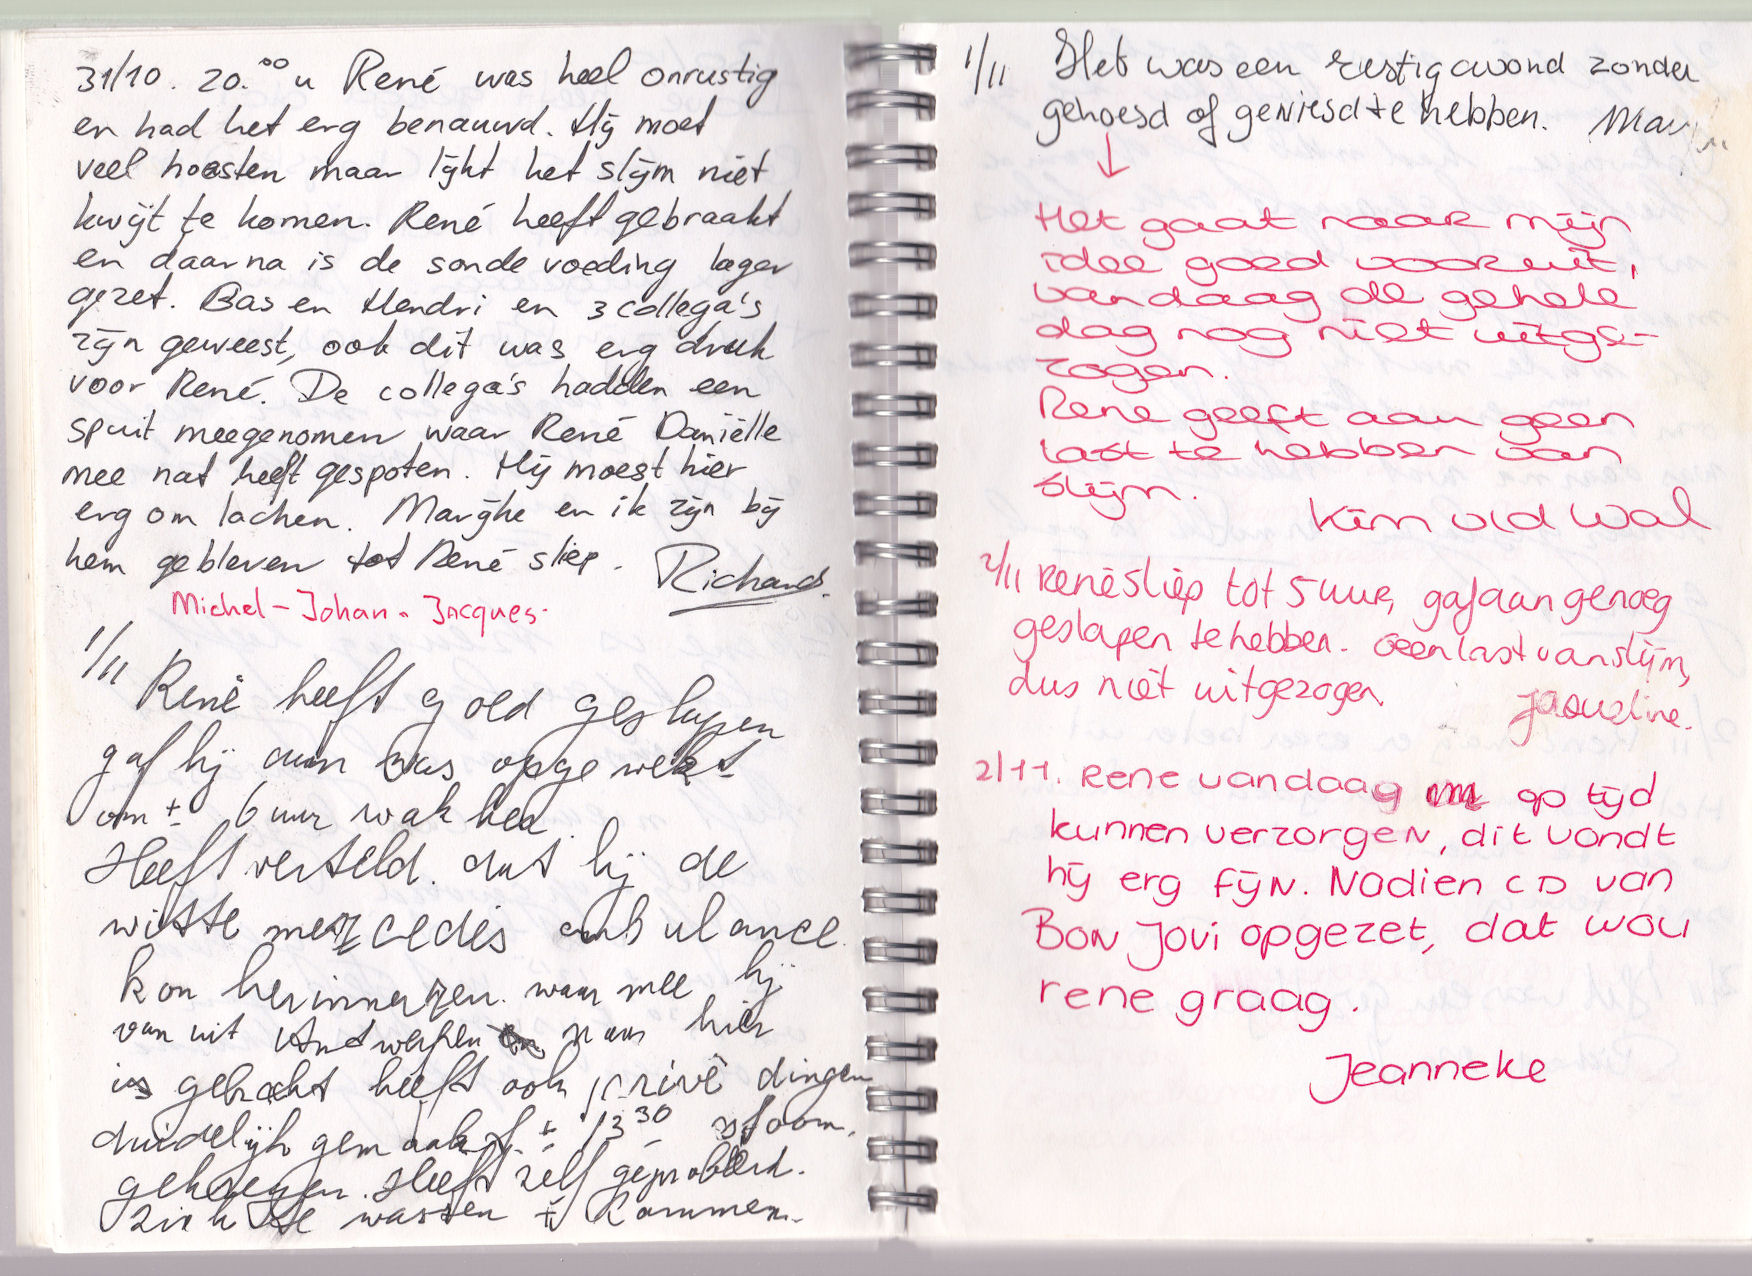 31/10. 20.00 u René was heel onrustig
en had het erg benauwd. Hij moet
veel hoesten maar lijkt het slijm niet
kwijt te komen. René heeft gebraakt
en daarna is de sonde voeding lager
gezet. Bas en Hendri en 3 collega's
zijn geweest, ook dit was erg druk
voor René. De collega's hadden een
spuit meegenomen waar René Daniëlle
mee nat heeft gespoten. Hij moest hier
erg om lachen. Marijhe en ik zijn bij
hem gebleven tot René sliep. Richard.
Michel - Johan - Jacques.
1/11 René heeft goed geslapen
gaf hij aan was opgewekt
om ± 6 uur wakker.
Heeft verteld. dat hij de
witte mercedes ambulance.
kon herinneren. waar mee hij
van uit Antwerpen naar hier
is gebracht heeft ook privé dingen
duidelijk gemaakt. ± 13 30 stoom.
gekregen. Heeft zelf geprobeerd.
zich te wassen + kammen.
1/11 Het was een rustig avond zonder
gehoesd of geniesd te hebben.
Het gaat naar mijn
idee goed vooruit,
vandaag de gehele
dag nog niet uitge-
zogen.
Rene geeft aan geen
last te hebben van
slijm.
Kim vld Wal
2/11 René sliep tot 5 uur, gaf aan genoeg
geslapen te hebben. Geen last van slijm,
dus niet uitgezogen. Jaqueline.
2/11. Rene vandaag op tijd
kunnen verzorgen, dit vondt
hij erg fijn. Nadien CD van
Bon Jovi opgezet, dat wou
rene graag.
Jeanneke